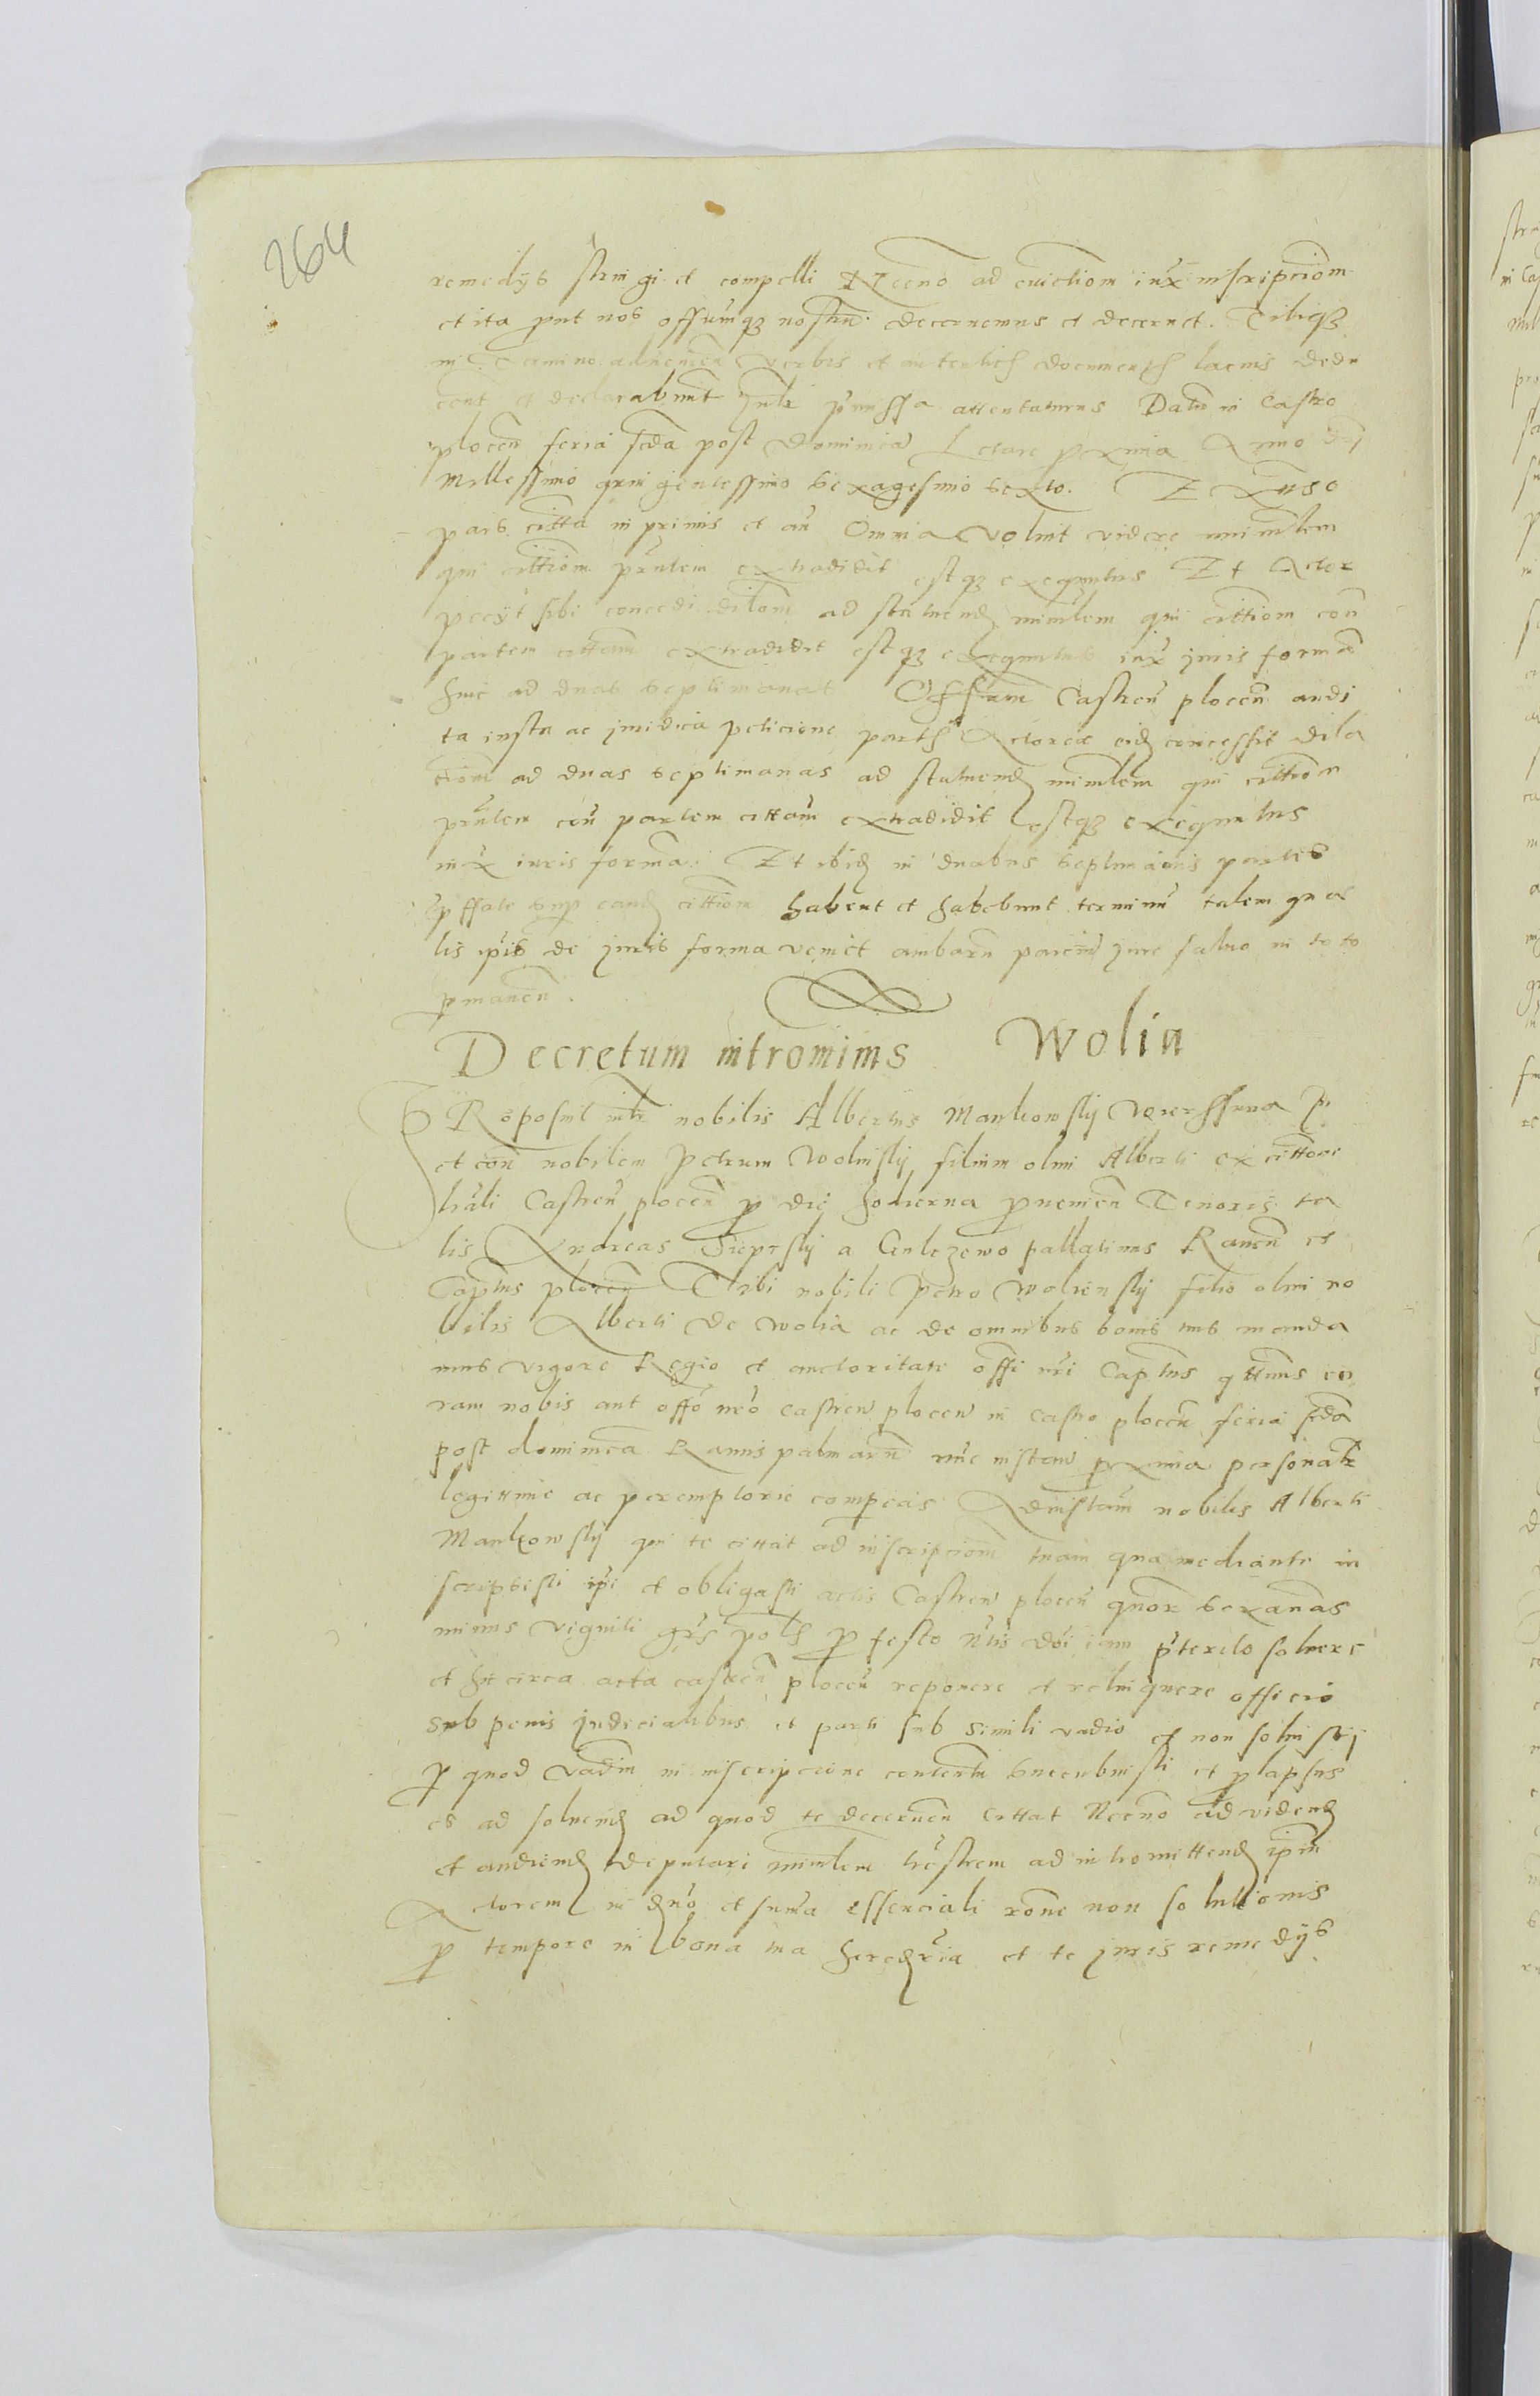 264
remedys stringi et compelli Necno ad evictiom iux inscripciom
et ita put nos offiumqz nostru decernemus et decernet. Tibiqz
in Termino advenien verbis et autenticis documentis lacius dedu
cent et declarabunt Inhi pmissa attentaturus Datu in Castro
plocen feria scda post dominica Letare pxima Anno dnj
Millessimo quingentessimo sexagesimo sexto. Ex adverso
pars citta in primis et an Omnia voluit videre minrlem
qui cittiom pntem extradidit estqz exequutus Et Actor
pecyt sibi concedi dilom ad statuend minrlem qui cittiom con
partem cittam extradidit estqz exequutus iux juris forma
hinc ad duas septimanas Offium Castren plocen audi
ta iusta ac juridica peticione partis Actoree eid concessit dila
ciom ad duas septimanas ad statuend minrlem qui cittiom
pntem con partem cittam extradidit estqz exequutus
iux iuris forma. Et ibid in duabus septimanis partes
pffate sup eand cittiom habent et habebunt terminu talem qua
lis pns de juris forma venict ambaru parciu jure salvo in toto
pmanen.
Decretum intromimis Wolia
PRoposuit inhi nobilis Albertus Mankowskij
et con nobilem Petrum Wolinskij filium olmi Alberti ex cittone
lrali Castren plocen p die hodierna pvenien Tenoris ta
lis Andreas Sieprskij a Gulczewo pallatinus Raven et
Captus plocen Tibi nobili Petro Wolienskij filio olmi no
bilis Alberti de Wolia ac de omnibus bonis tuis manda
mus vigore Regio et auctoritate offi nri Captus qttinus co
ram nobis aut offo nro castren plocen in castro plocen feria scda
post dominica Ramis palmaru nuc instan pxima personalr
legittime ac peremptorie compeas Ad instam nobilis Alberti
Mankowskij qui te cittat ad inscripciom tuam qua mediante in
scripsisti ipi et obligasti actis Castren plocen quor sexanas
minus viginti grs polis p festo ntis dni iam pterito solvere
et hic circa acta castren plocen reponere et relinquere officio
sub penis judicialibus et parti sub simili vadio et non solvistj
p quod vadiu in inscripcione contentu succubuisti et plapsus
es ad solvend ad quod te decernen cittat Necno ad vidend
et audiend deputari minrlem trestrem ad intromittend ipm
Actorem in dno et suma essenciali rone non soluttionis
p tempore in bona tua heredria et te juris remedijs